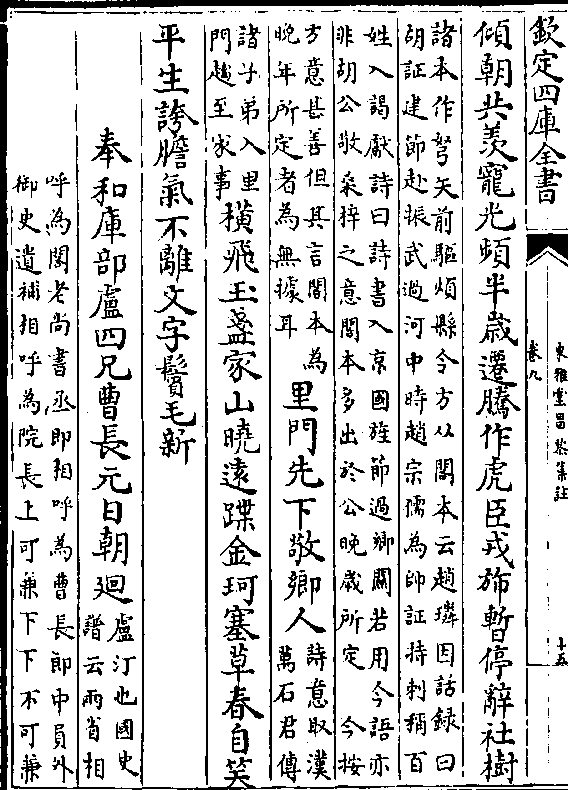 欽定四庫全書
東雅堂昌黎集註
卷九
十五
傾朝共羨寵光頻半嵗遷騰作虎臣戎斾暫停辭社樹
諸本作弩矢前驅煩縣令方从閣本云趙璘因話録曰
胡証建節赴振武過河中時趙宗儒為帥証持刺稱百
姓入謁獻詩曰詩書入京國旌節過鄉關若用今語亦
非胡公敬桑梓之意閣本多出於公晚嵗所定 今按
方意甚善但其言閣本為
晚年所定者為無據耳
里門先下敬鄉人
詩意取漢
萬石君傳
諸子弟入里
門趨至家事
横飛玉盞家山曉遠蹀金珂塞草春自笑
平生誇膽氣不離文字鬢毛新
奉和庫部盧四兄曹長元日朝廻
盧汀也國史
譜云兩省相
呼為閣老尚書丞郎相呼為曹長郎中員外
御史遺補相呼為院長上可兼下下不可兼